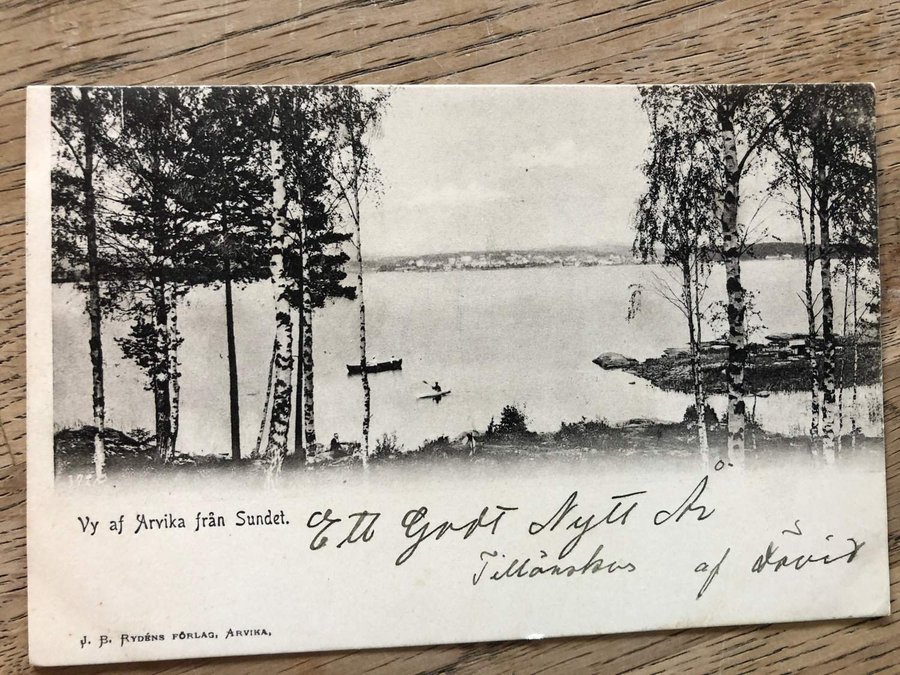 Vy af Arvika från Sundet.
Ett Godt Nytt År
Tillönskas af David
J. B. RYDÉNS FÖRLAG, ARVIKA,